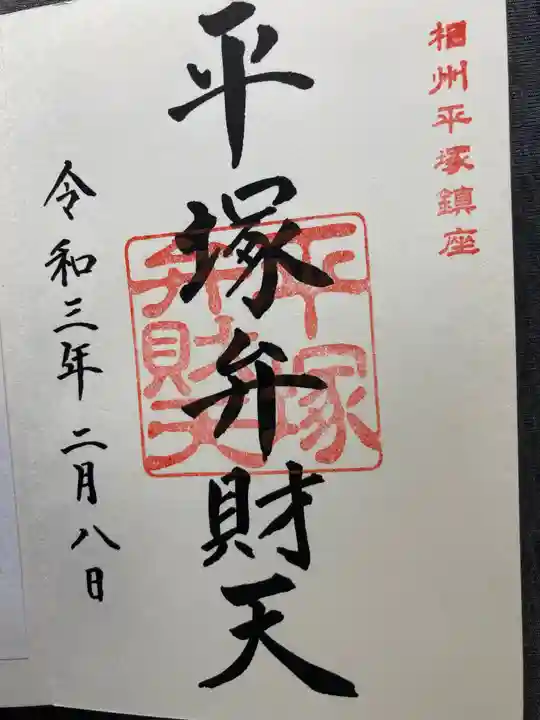 相州平塚鎮座
平塚弁財天
平塚
弁財天
令和三年 二月八日